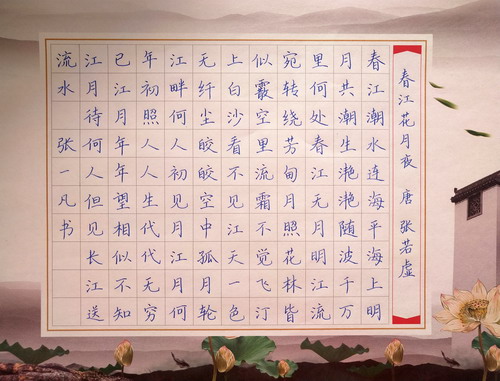 春江花月夜 唐 张若虚
春江潮水连海平海上明
月共潮生滟滟随波千万
里何处春江无月明江流
宛转绕芳甸月照花林皆
似霰空里流霜不觉飞汀
上白沙看不见江天一色
无纤尘皎皎空中孤月轮
江畔何人初见月江月何
年初照人人生代代无穷
已江月年年望相似不知
江月待何人但见长江送
流水 张一凡书